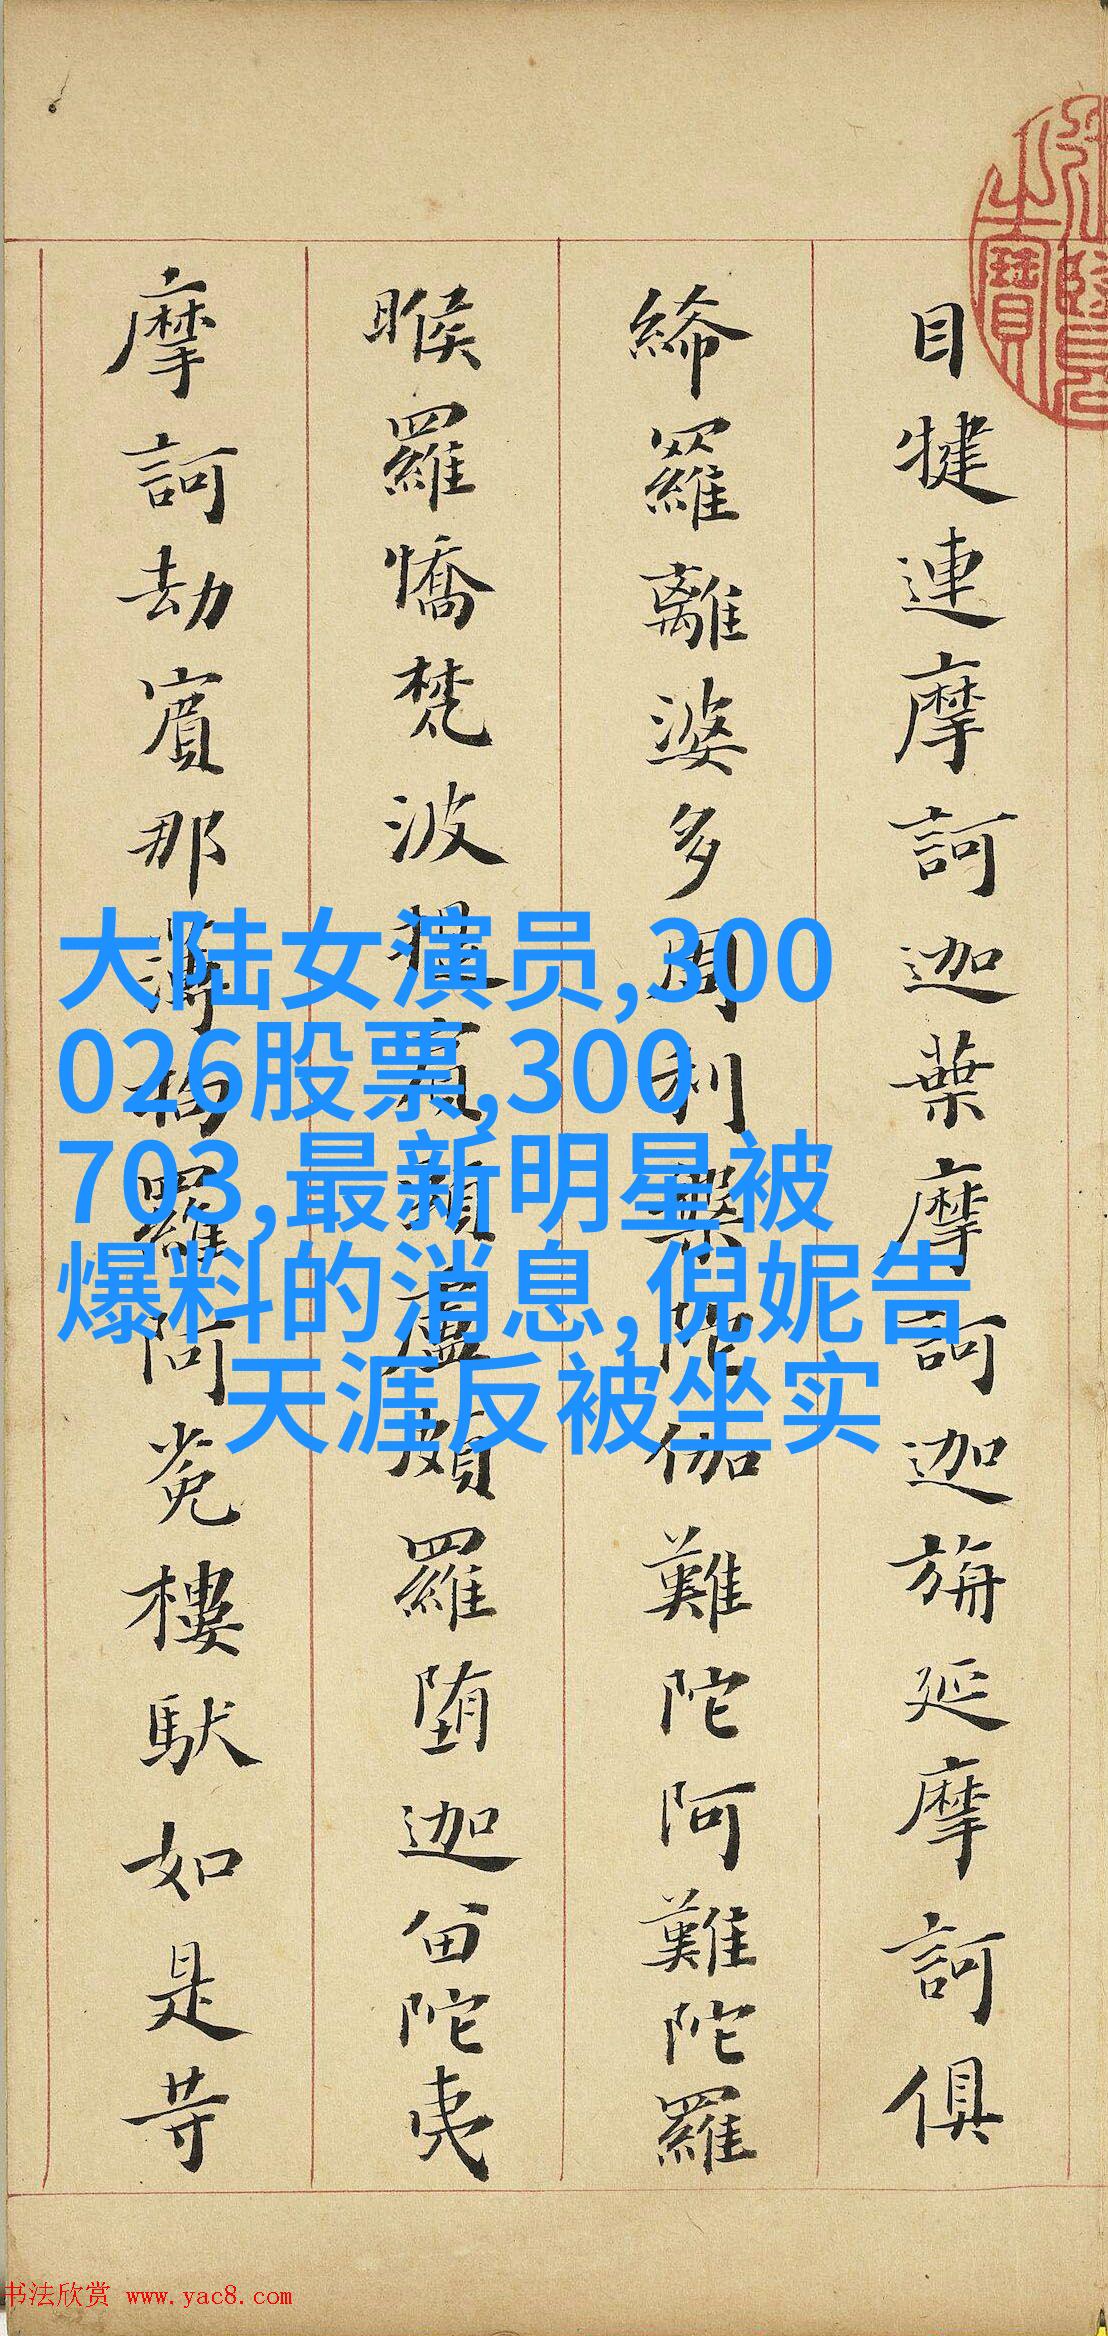 目犍連摩訶迦葉摩訶迦旃延摩訶俱
絺羅離婆多周利槃陀伽難陀阿難陀羅
睺羅憍梵波提賓頭盧頗羅堕迦留陀夷
摩訶劫賓那薄拘羅阿㝹樓馱如是等
大陆女演员,300
026股票,300
703,最新明星被
爆料的消息,倪妮告
天涯反被坐实
之寶
书法欣赏 www.yac8.com